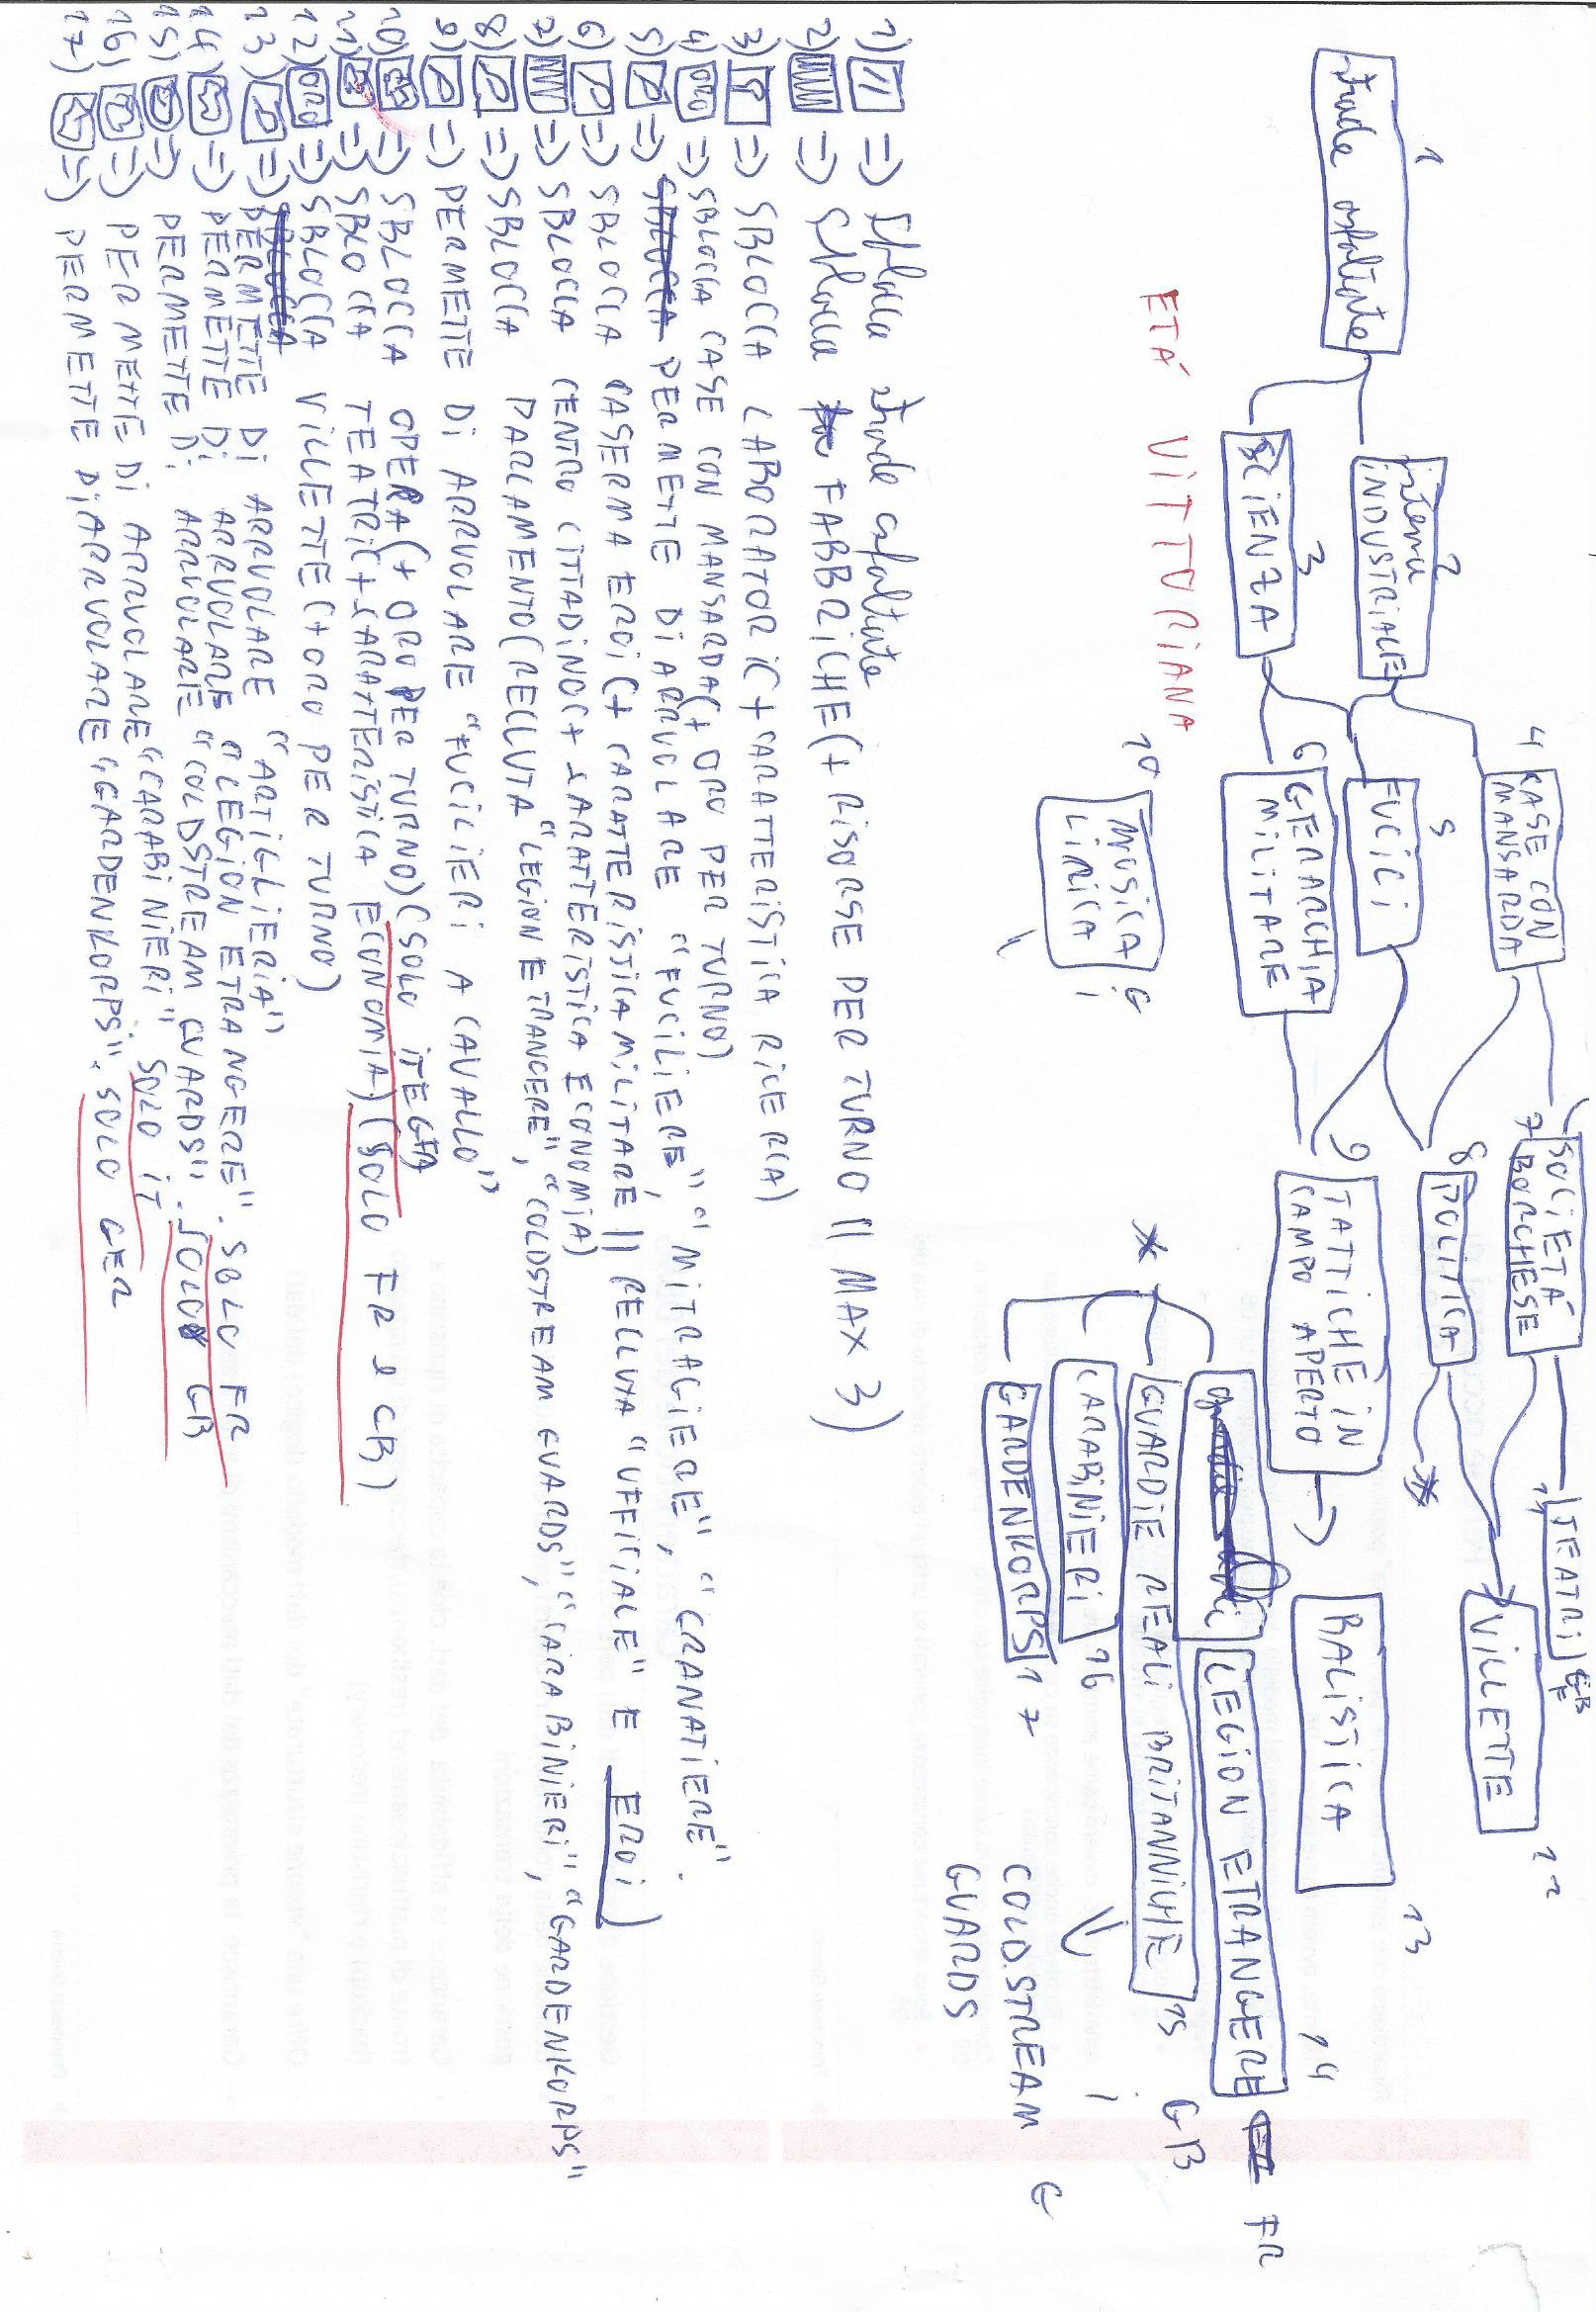 4 CASE CON
MANSARDA
7 SOCIETÁ
BORGHESE
11 TEATRI GB
F
12
VILLETTE
8 POLITICA
1
strade asfaltate
2
sistema
INDUSTRIALE
5
FUCILI
3
SCIENZA
6 GERARCHIA
MILITARE
9 TATTICHE IN
CAMPO APERTO
13
BALISTICA
14
LEGION ETRANGERE FR
ETÁ VITTORIANA
10 MUSICA
LIRICA
G
i
GUARDIE REALI BRITANNICHE 15 GB
CARABINIERI 16 i
GARDENKORPS 17 G
COLD.STREAM
GUARDS
1) => Sblocca strade asfaltate
2) => Sblocca FABBRICHE (+ RISORSE PER TURNO || MAX 3)
3) => SBLOCCA LABORATORI (+ CARATTERISTICA RICERCA)
4) ORO => SBLOCCA CASE CON MANSARDA (+ ORO PER TURNO)
5) => SBLOCCA PERMETTE DI ARRUOLARE "FUCILIERE", "MITRAGIERE", "GRANATIERE".
6) => SBLOCCA CASERMA EROI (+ CARATTERISTICA MILITARE || RECLUTA "UFFICIALE" E EROI)
7) => SBLOCCA CENTRO CITTADINO (+ CARATTERISTICA ECONOMIA)
8) => SBLOCCA PARLAMENTO (RECLUTA "LEGION ETRANGERE", "COLDSTREAM GUARDS", "CARABINIERI", "GARDENKORPS"
9) => PERMETTE DI ARRUOLARE "FUCILIERI A CAVALLO"
10) => SBLOCCA OPERA (+ ORO PER TURNO) (SOLO IT E GER)
11) => SBLOCCA TEATRI (+ CARATTERISTICA ECONOMIA) (SOLO FR e GB)
12) ORO => SBLOCCA VILLETTE (+ ORO PER TURNO)
13) => SBLOCCA
PERMETTE DI ARRUOLARE "ARTIGLIERIA"
14) => PERMETTE DI ARRUOLARE "LEGION ETRANGERE". SOLO FR
15) => PERMETTE DI ARRUOLARE "COLDSTREAM GUARDS". SOLO GB
16) => PERMETTE DI ARRUOLARE "CARABINIERI". SOLO IT
17) => PERMETTE DI ARRUOLARE "GARDENKORPS". SOLO GER